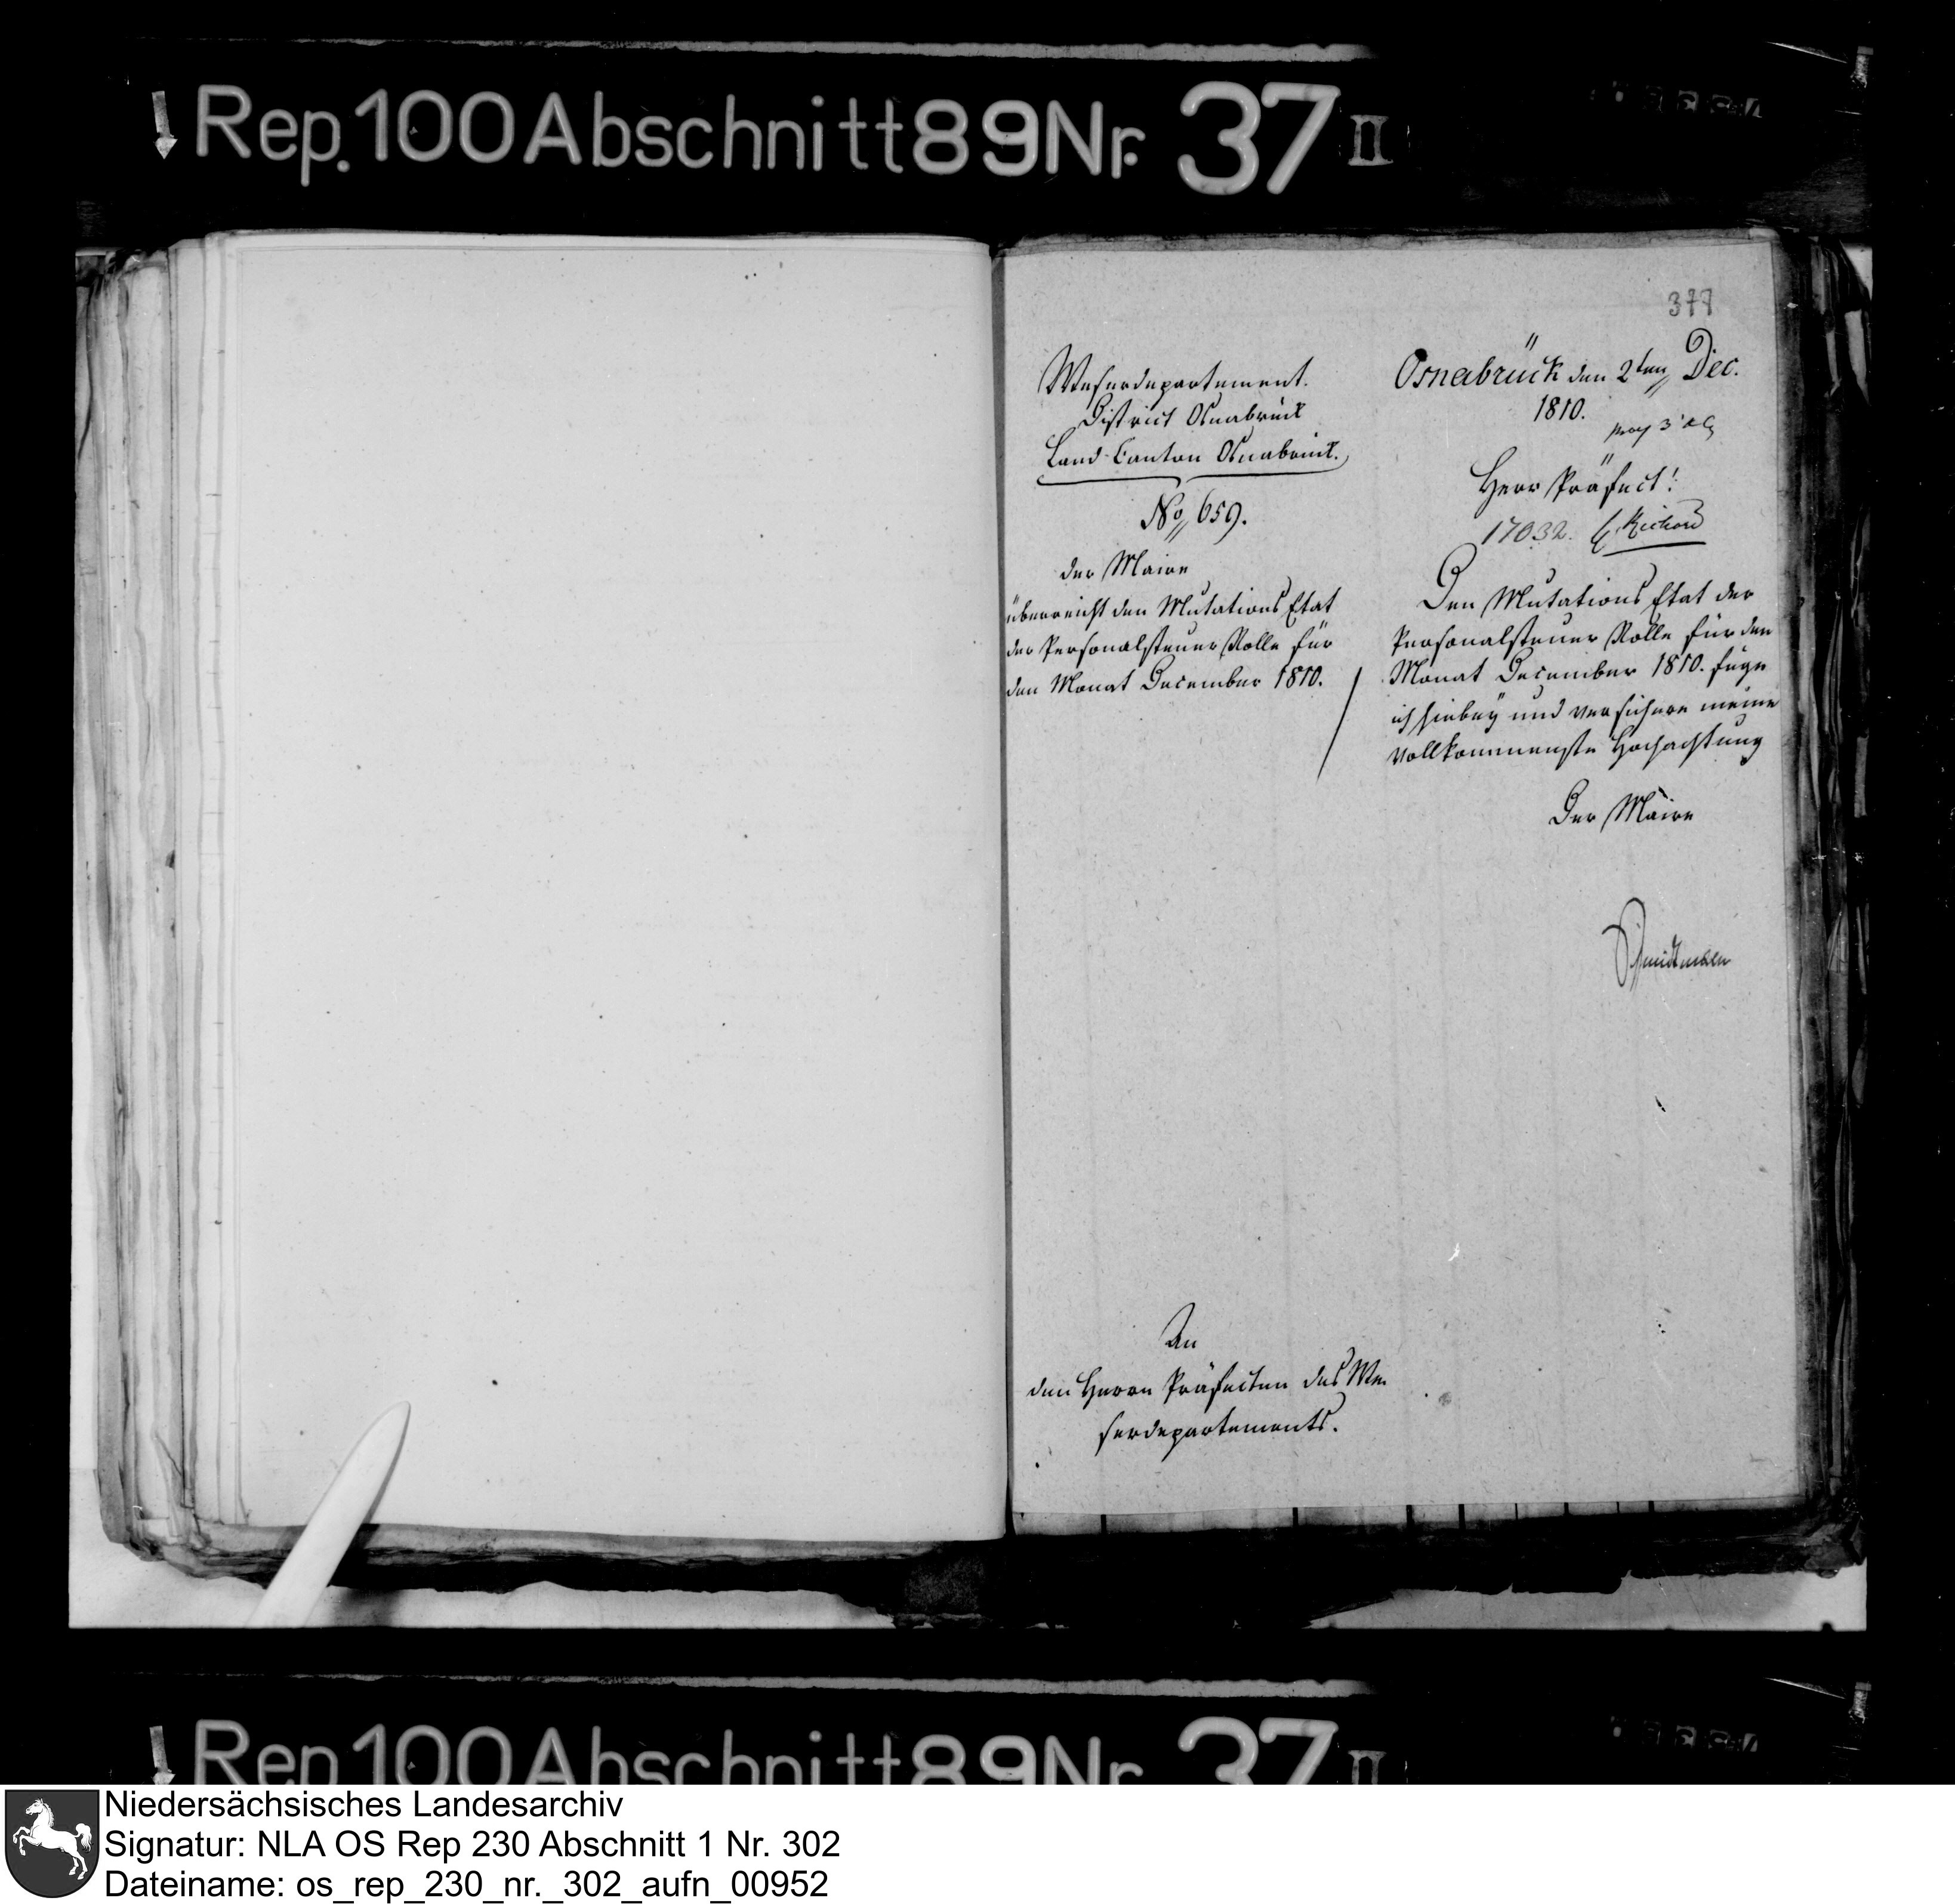 Rep. 100 Abschnitt 89 Nr. 37 II
377
Weserdepartement.
District Osnabrück
Land-Canton Osnabrück.
No 659.
der Maire
überreicht den Mutations Etat
der Personalsteuer Rolle für
den Monat December 1810.
Osnabrück den 2ten Dec.
1810.
Herr Präfect!
17032.
Den Mutations Etat der
Personalsteuer Rolle für den
Monat December 1810. füge
ich hiebey und versichere meine
vollkommenste Hochachtung
Der Maire
An
den Herrn Präfecten des We
serdepartements.
Rep. 100 Abschnitt 89 Nr. 37 II
Niedersächsisches Landesarchiv
Signatur: NLA OS Rep 230 Abschnitt 1 Nr. 302
Dateiname: os_rep_230_nr._302_aufn_00952